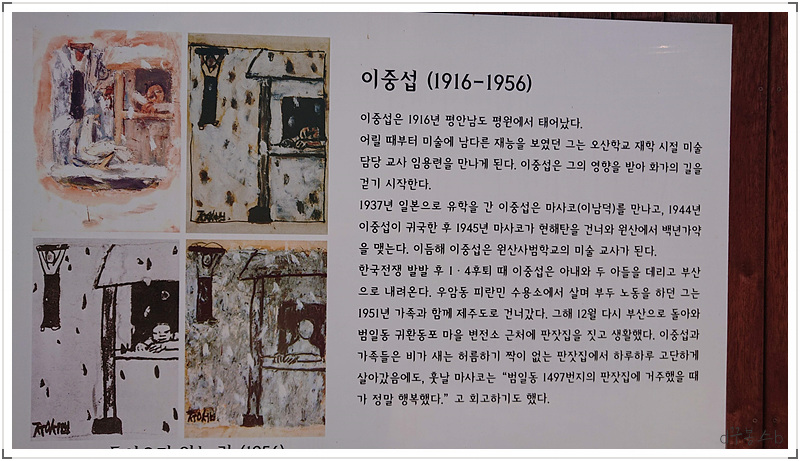 이중섭 (1916-1956)
이중섭은 1916년 평안남도 평원에서 태어났다.
어릴 때부터 미술에 남다른 재능을 보였던 그는 오산학교 재학 시절 미술
담당 교사 임용련을 만나게 된다. 이중섭은 그의 영향을 받아 화가의 길을
걷기 시작한다.
1937년 일본으로 유학을 간 이중섭은 마사코(이남덕)를 만나고, 1944년
이중섭이 귀국한 후 1945년 마사코가 현해탄을 건너와 원산에서 백년가약
을 맺는다. 이듬해 이중섭은 원산사범학교의 미술 교사가 된다.
한국전쟁 발발 후 1·4후퇴 때 이중섭은 아내와 두 아들을 데리고 부산
으로 내려온다. 우암동 피란민 수용소에서 살며 부두 노동을 하던 그는
1951년 가족과 함께 제주도로 건너갔다. 그해 12월 다시 부산으로 돌아와
범일동 귀환동포 마을 변전소 근처에 판잣집을 짓고 생활했다. 이중섭과
가족들은 비가 새는 허름하기 짝이 없는 판잣집에서 하루하루 고단하게
살아갔음에도, 훗날 마사코는 “범일동 1497번지의 판잣집에 거주했을 때
가 정말 행복했다.” 고 회고하기도 했다.